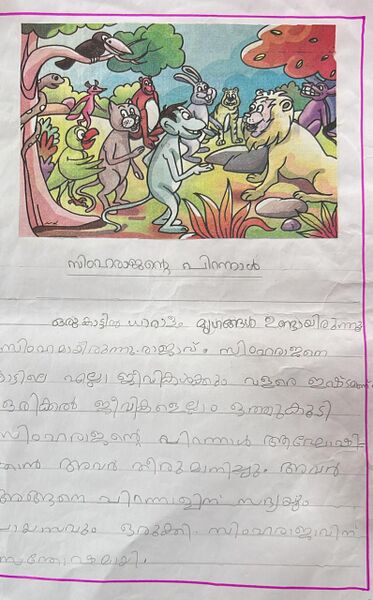 സിംഹരാജന്റെ പിറന്നാൾ
ഒരു കാട്ടിൽ ധാരാളം മൃഗങ്ങൾ ഉണ്ടായിരുന്നു
സിംഹമായിരുന്നു രാജാവ്. സിംഹരാജനെ
കാട്ടിലെ എല്ലാ ജീവികൾക്കും വളരെ ഇഷ്ടമാണ്
ഒരിക്കൽ ജീവികളെല്ലാം ഒത്തുകൂടി
സിംഹരാജന്റെ പിറന്നാൾ ആഘോഷി-
ക്കാൻ അവർ തീരുമാനിച്ചു. അവർ
അങ്ങനെ പിറന്നാളിന് സദ്യയും
പായസവും ഒരുക്കി. സിംഹരാജാവിന്
സന്തോഷമായി.